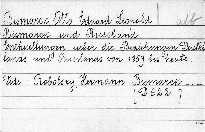 Bismarck Otto Eduard Leopold alt
Bismarck und Russland
Enthüllungen über die Beziehungen Deutsch
lands und Russlands von 1859 bis heute.
Robolsky, Hermann Bismarck